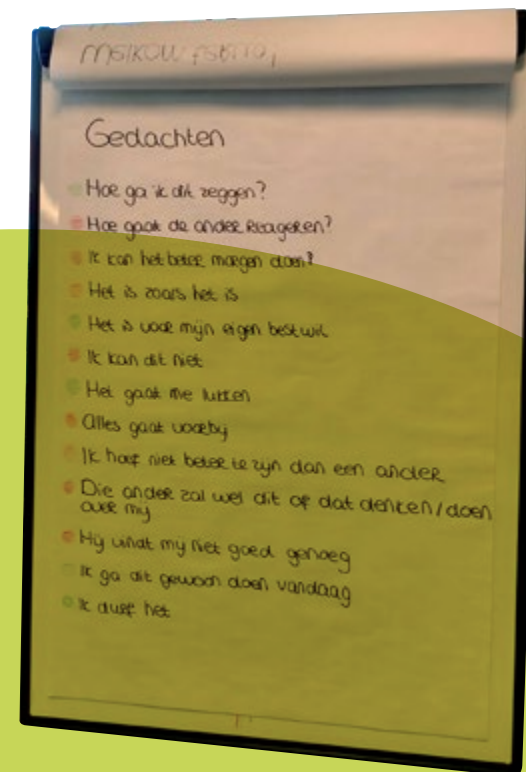 Gedachten
Hoe ga ik dit zeggen?
Hoe gaat de ander reageren?
Ik kan het beter morgen doen?
Het is zoals het is
Het is voor mijn eigen bestwil
Ik kan dit niet
Het gaat me lukken
Alles gaat voorbij
Ik hoef niet beter te zijn dan een ander
Die ander zal wel dit of dat denken/doen
over mij
Hij vindt mij niet goed genoeg
Ik ga dit gewoon doen vandaag
Ik durf het